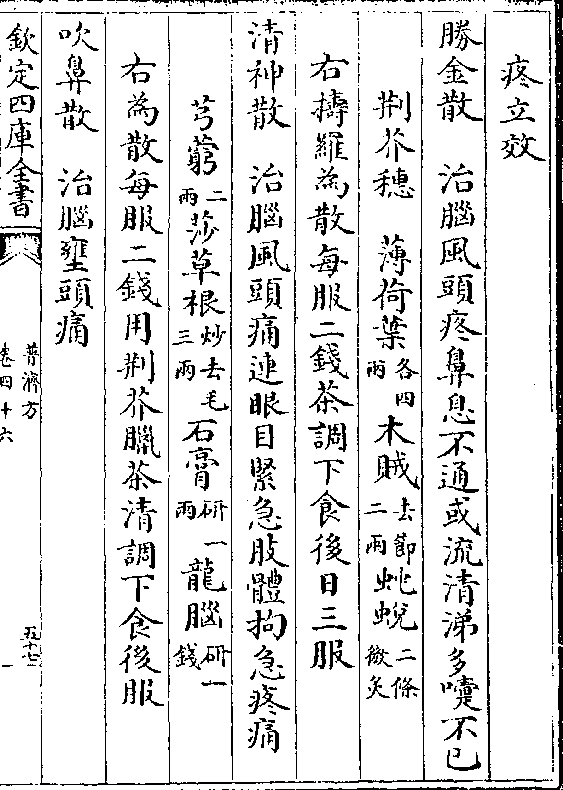 疼立效
勝金散　治腦風頭疼鼻息不通或流清涕多嚏不已
荆芥穗　薄荷葉各四兩木賊去節二兩虵蛻二條微灸
右擣羅為散每服二錢茶調下食後日三服
清神散　治腦風頭痛連眼目緊急肢體拘急疼痛
芎藭二兩莎草根炒去毛三兩石膏研一兩龍腦研一錢
右為散每服二錢用荆芥臘茶清調下食後服
吹鼻散　治腦壅頭痛
欽定四庫全書
普濟方
卷四十六